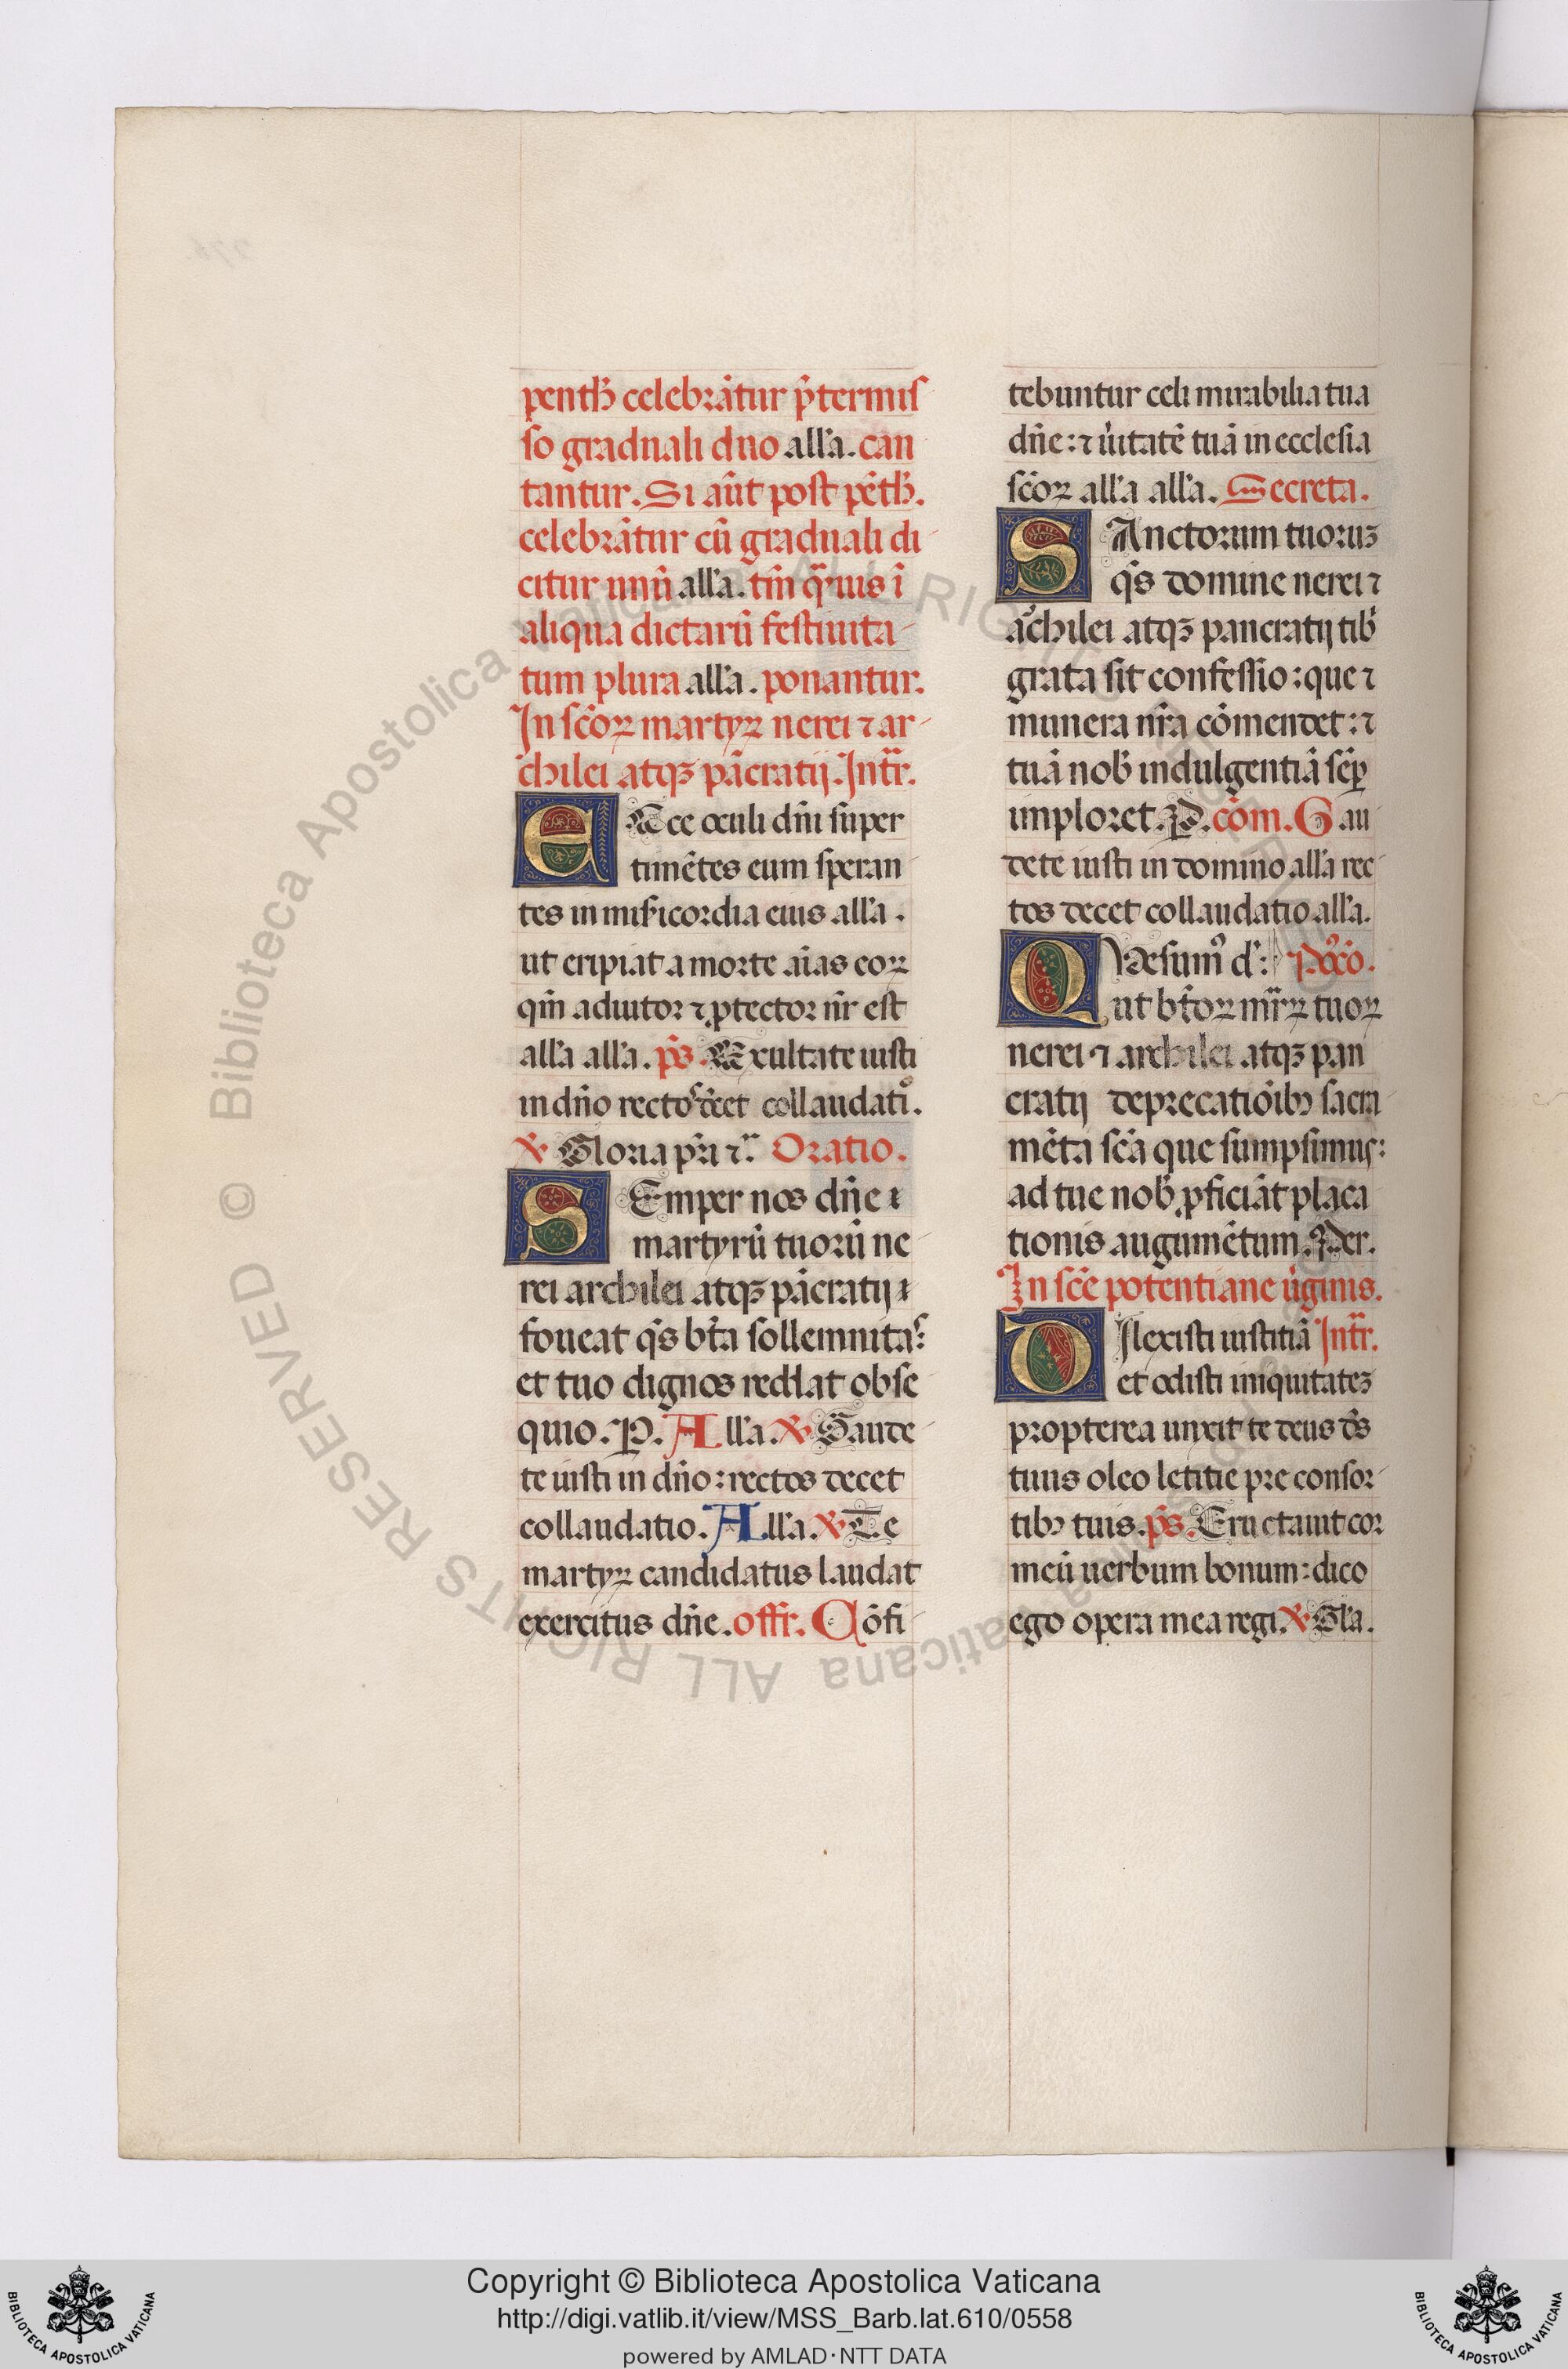 penth̄ celebrāt̄ur p̄termis
so graduali duo all'a. can
tantur. Si aūt post pēth̄.
celebrātur cū graduali di
citur unū all'a. tm̄ q̄uis ī
aliqua dictarū festiuita
tum plura all'a. ponantur.
In scōꝝ martyꝝ nerei ⁊ ar
chilei atqꝫ pācratij. Intr̄.
EEce oculi dn̄i super
timētes eum speran
tes in mis̄icordia eius all'a.
ut eripiat a morte aīas eoꝝ
qm̄ adiutor ⁊ ꝓtector nr̄ est
all'a all'a. p̄s. Exultate iusti
in dn̄o rectos decet collaudatio.
℣ Gloria pr̄i ⁊c̄. Oratio.
SEmper nos dn̄e
martyrū tuorū ne
rei archilei atqꝫ pācratij
foueat q̄s bt̄a sollemnitas:
et tuo dignos reddat obse
quio. P. All'a. ℣ Gaude
te iusti in dn̄o: rectos decet
collaudatio. All'a. ℣ Te
martyꝝ candidatus laudat
exercitus dn̄e. offr̄. Cōfi
tebuntur celi mirabilia tua
dn̄e: ⁊ ūitatē tuā in ecclesia
scōꝝ all'a all'a. Secreta.
SAnctorum tuoruꝫ
q̄s domine nerei ⁊
achilei atqꝫ pancratij tib̄
grata sit confessio: que ⁊
munera nr̄a cōmendet: ⁊
tuā nob̄ indulgentiā sēp̄
imploret. P. cōm. Gau
dete iusti in domino all'a rec
tos decet collaudatio all'a.
QVesumꝰ d̄: Pꝰcō.
ut bt̄oꝝ mr̄ꝝ tuoꝝ
nerei ⁊ archilei atqꝫ pan
cratij deprecatiōibꝫ sacra
mēta scā que sumpsimus:
ad tue nob̄ ꝓficiāt placa
tionis augumētum. Per.
In scē potentiane ūginis.
DIlexisti iustitiā Intr̄.
et odisti iniquitateꝫ
propterea unxit te deus d̄s
tuus oleo letitie pre consor
tibꝫ tuis. p̄s. Eructauit cor
meū uerbum bonum: dico
ego opera mea regi. ℣ Gl'a.
Copyright © Biblioteca Apostolica Vaticana
http://digi.vatlib.it/view/MSS_Barb.lat.610/0558
powered by AMLAD·NTT DATA
BIBLIOTECA APOSTOLICA VATICANA
BIBLIOTECA APOSTOLICA VATICANA
© Biblioteca Apostolica Vaticana ALL RIGHTS RESERVED